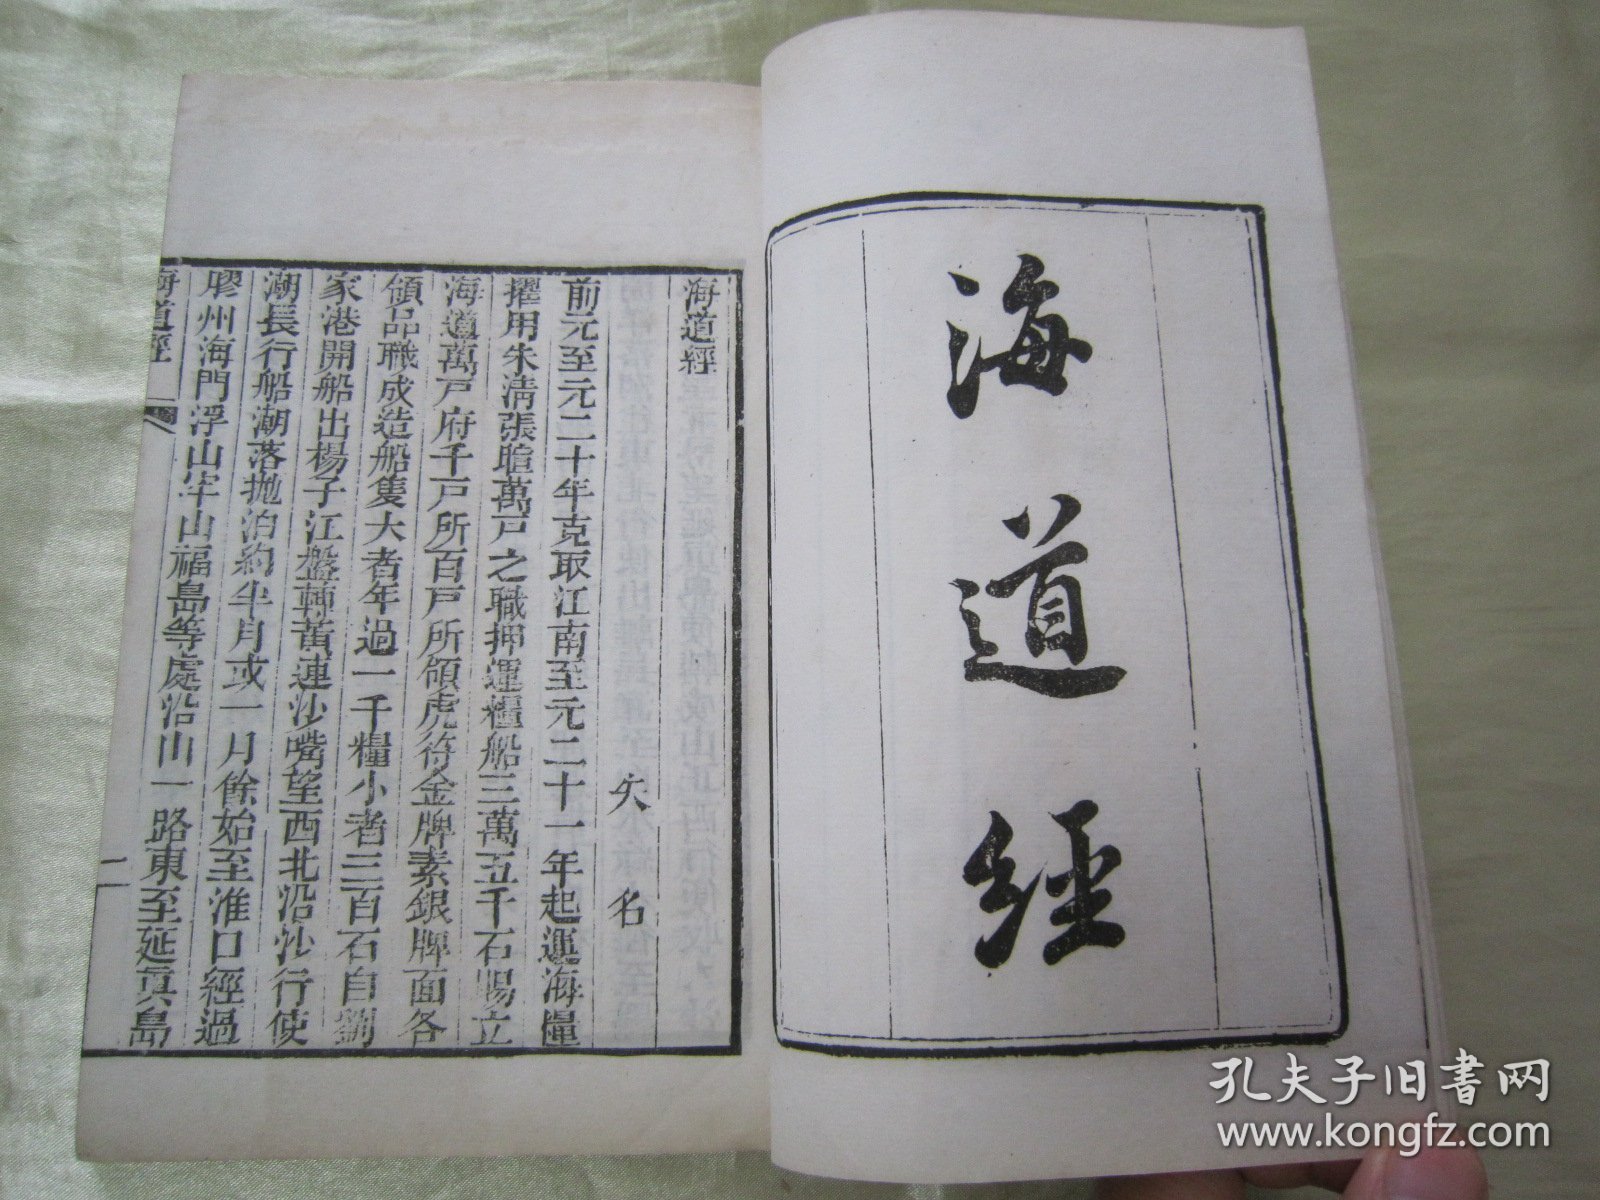 海道經
海道經
失名
前元至元二十年克取江南至元二十一年起運海糧
擢用朱清張瑄萬戶之職押運糧船三萬五千石賜立
海道萬戶府千戶所百戶所領虎符金牌素銀牌面各
領品職成造船隻大者年過一千糧小者三百石自劉
家港開船出楊子江盤轉黃連沙嘴望西北沿沙行使
潮長行船潮落抛泊約半月或一月餘始至淮口經過
膠州海門浮山牢山福島等處沿山一路東至延真島
海道經
一
孔夫子旧書网
www.kongfz.com